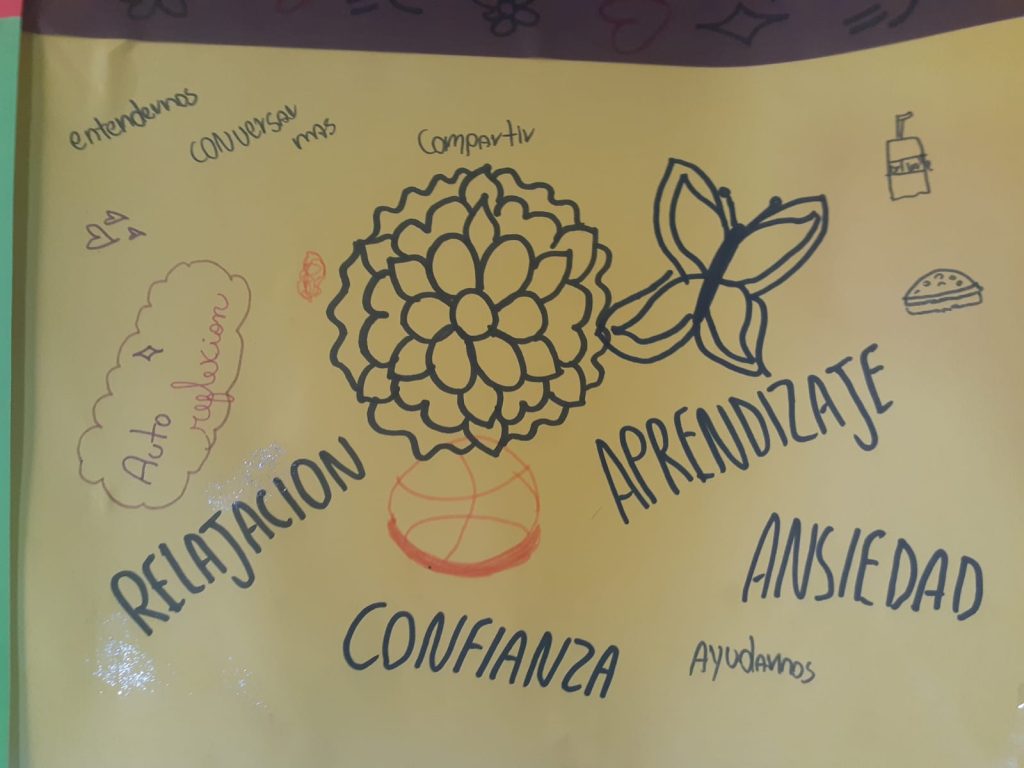 entendernos
conversar
mas
Compartir
Auto
reflexion
RELAJACION
APRENDIZAJE
ANSIEDAD
CONFIANZA
Ayudarnos